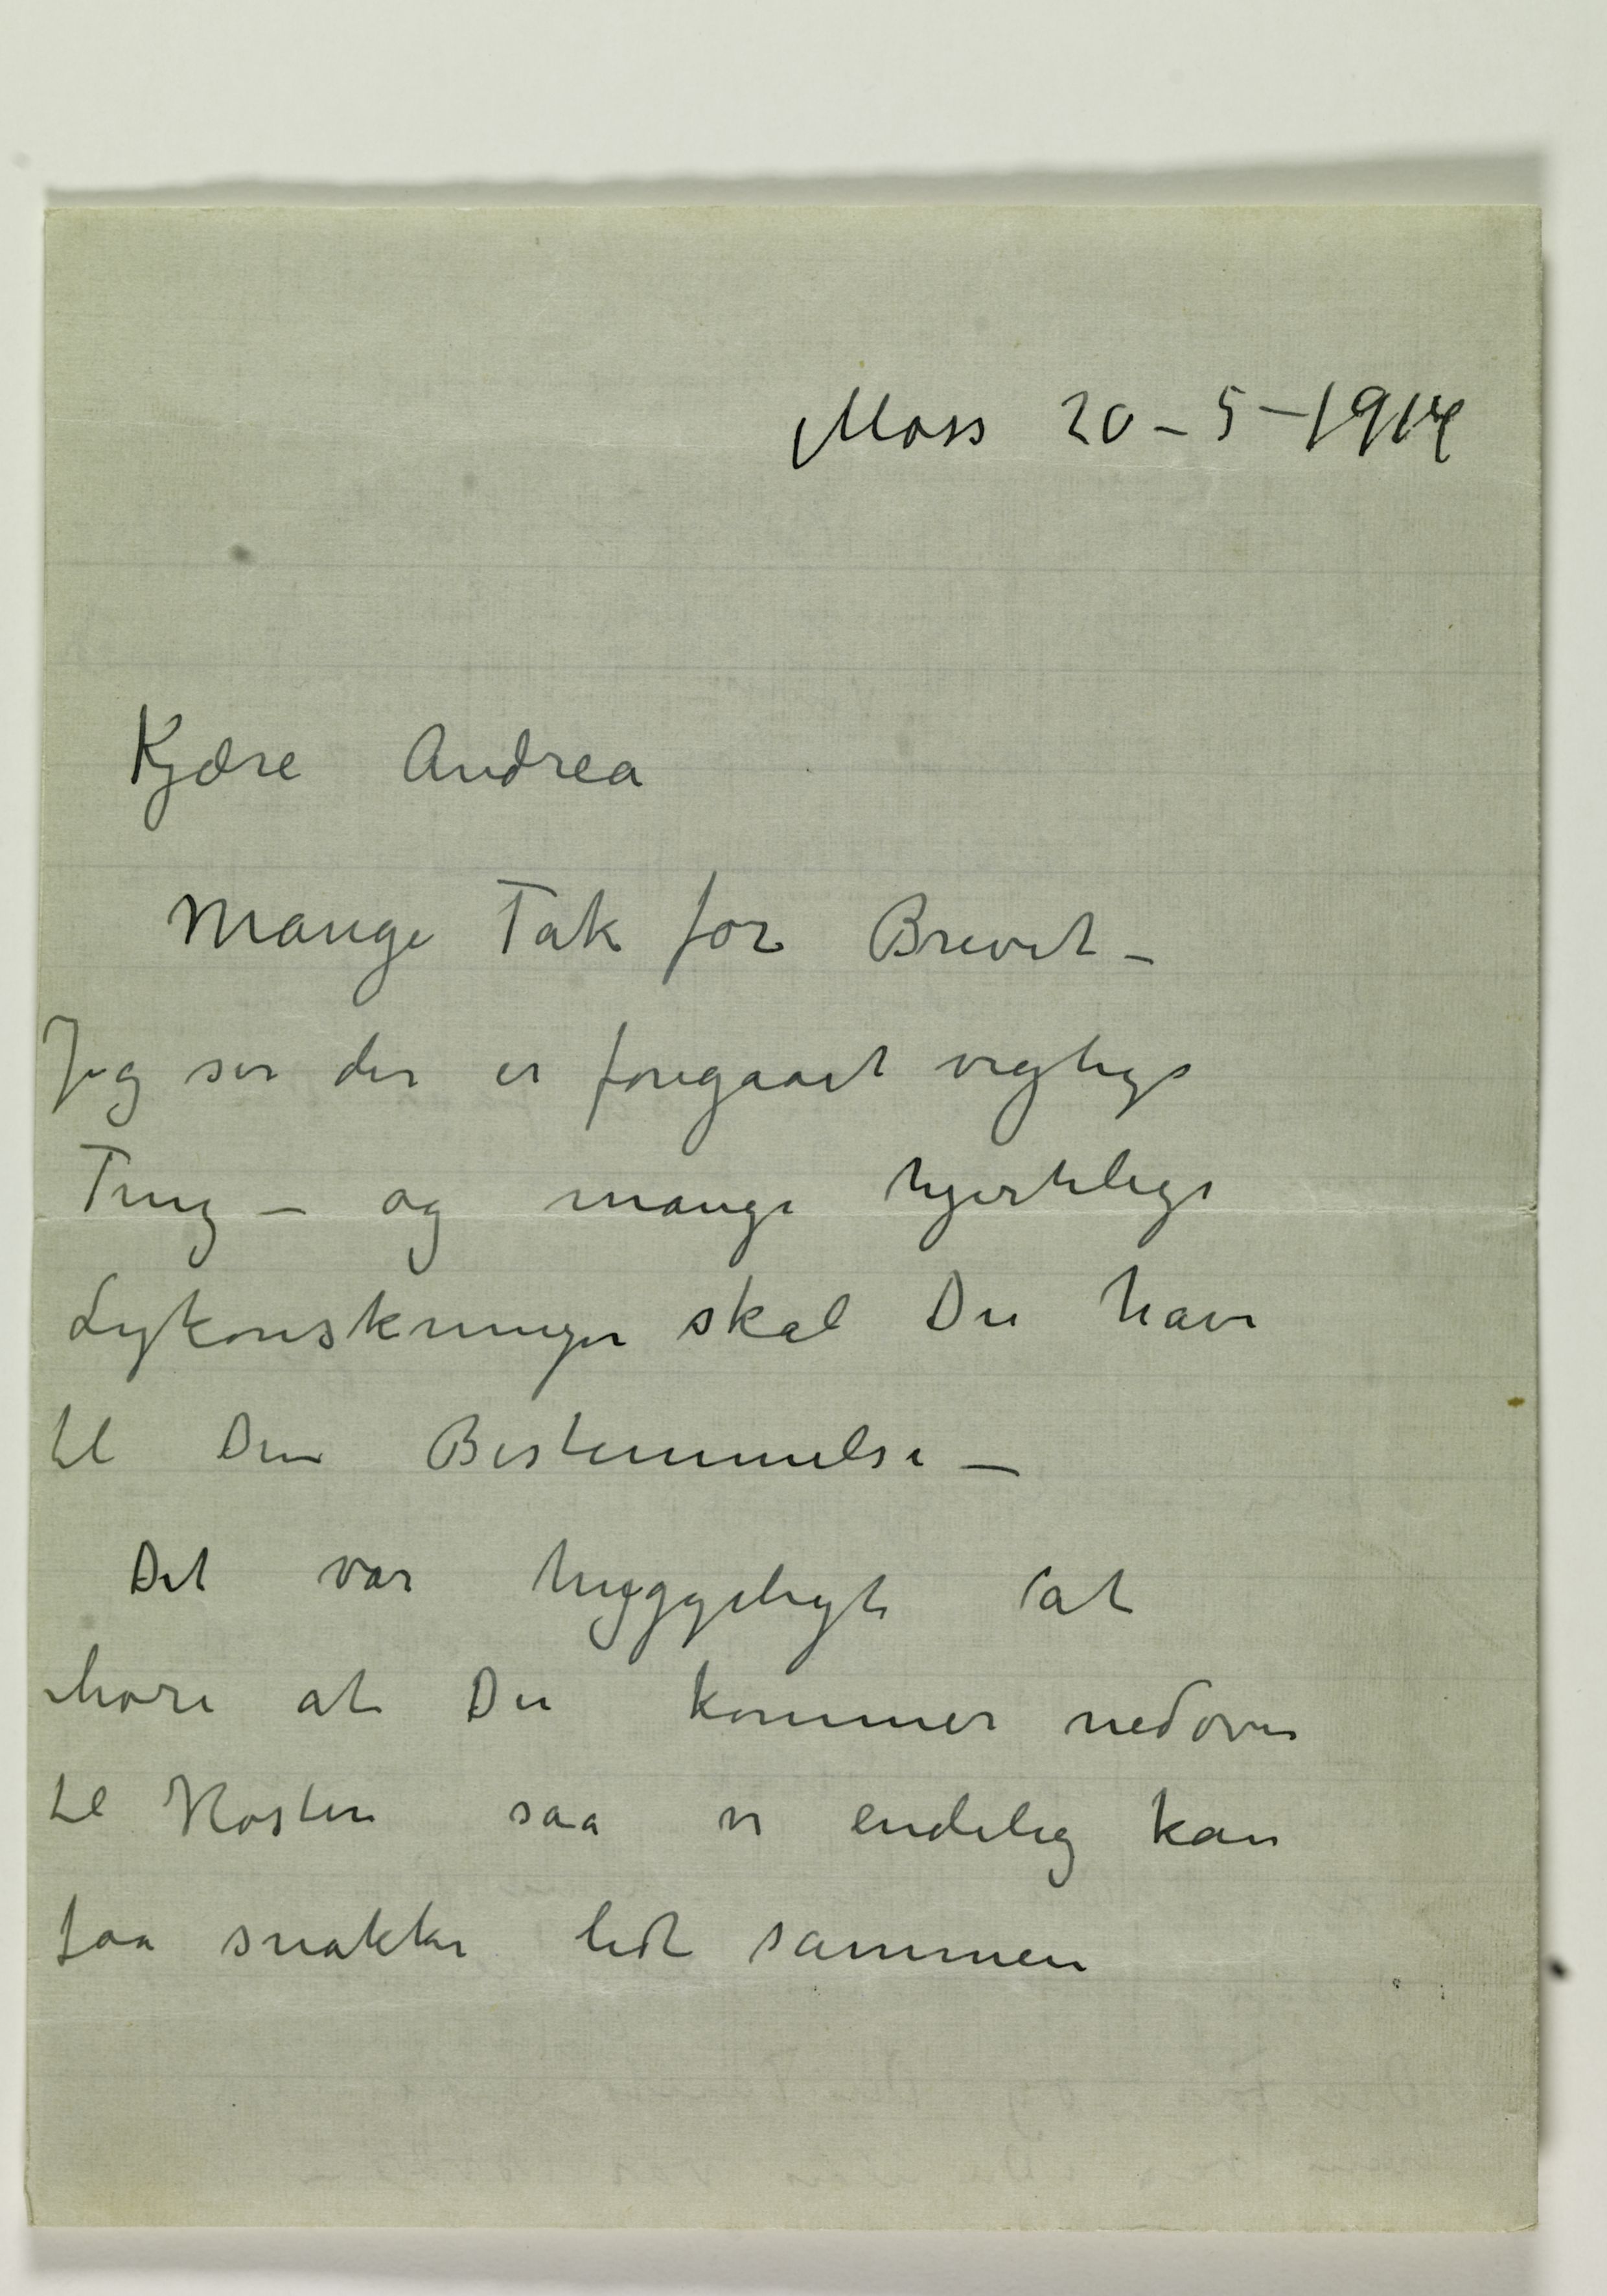 Moss 20 – 5 – 1914
Kjære Andrea
Mange Tak for Brevet –
Jeg ser der er foregaaet vigtige
Ting – og mange hjertelige
Lykønskninger skal Du have
til Din Bestemmelse –
Det var hyggeligt at
høre at Du kommer nedover
til Høsten saa vi endelig kan
faa snakke lidt sammen